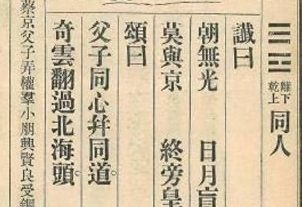 離下
乾上
同人
讖曰
朝無光　日月盲
莫與京　終旁皇
頌曰
父子同心幷同道。
奇雲翻過北海頭。
蔡京父子弄權羣小朋興賢良受